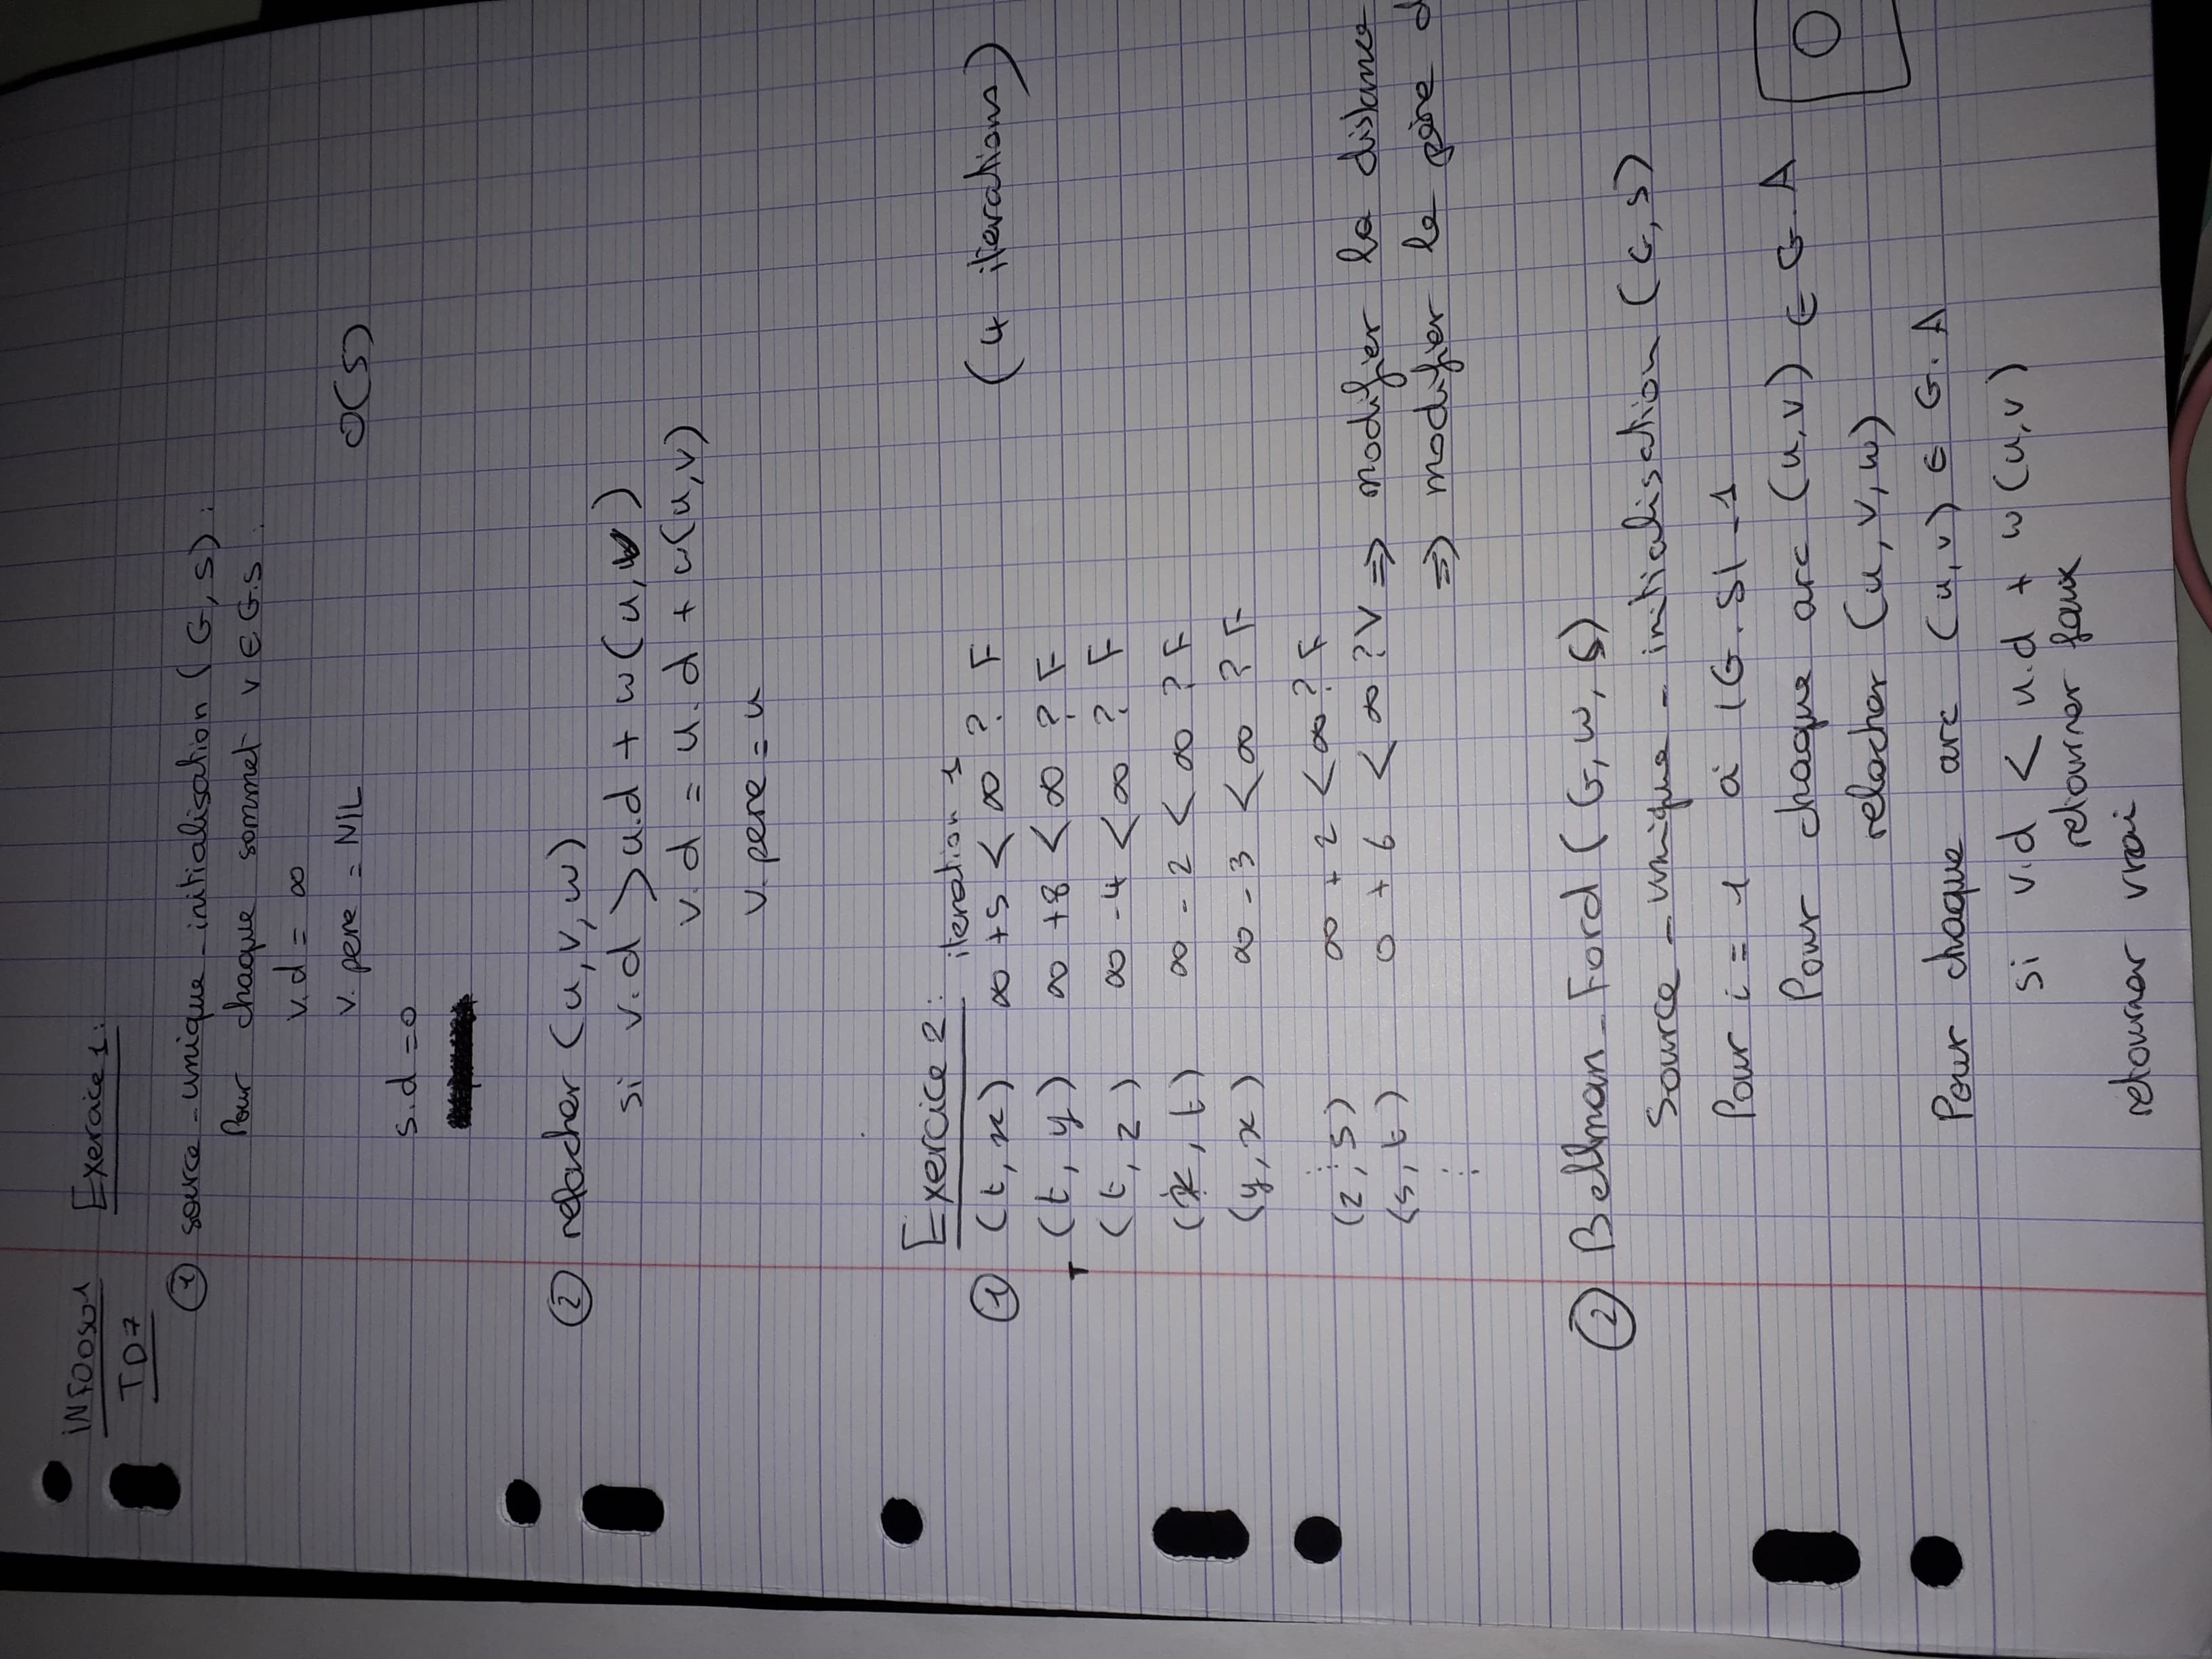 INFO0501 Exercice 1:
TD7
① source_unique_initialisation (G, s):
Pour chaque sommet v ∈ G.S :
v.d = ∞
v.pere = NIL O(S)
s.d = 0
② relacher (u, v, w)
si v.d > u.d + w(u, v)
v.d = u.d + w(u,v)
v.pere = u
Exercice 2:
iteration 1
① (t, x) ∞ +5 < ∞ ? F (4 iterations)
(t, y) ∞ +8 < ∞ ? F
(t, z) ∞ -4 < ∞ ? F
(x, t) ∞ - 2 < ∞ ? F
(y, x) ∞ - 3 < ∞ ? F
⋮
(z, s) ∞ + 2 < ∞ ? F
(s, t) 0 + 6 < ∞ ? V ⇒ modifier la distance
⇒ modifier le père d
⋮
② Bellman_Ford (G, w, s)
Source_unique_initialisation (G, s)
Pour i = 1 à |G.S| - 1
Pour chaque arc (u,v) ∈ G.A
relacher (u, v, w)
O
Pour chaque arc (u,v) ∈ G.A
si v.d < u.d + w(u,v)
retourner faux
retourner vrai